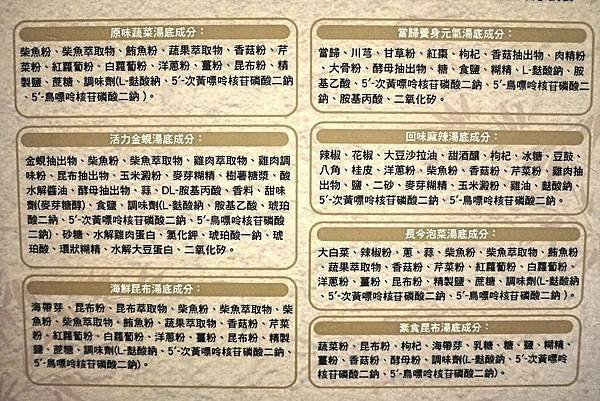 原味蔬菜湯底成分：
柴魚粉、柴魚萃取物、鮪魚粉、蔬果萃取物、香菇粉、芹
菜粉、紅蘿蔔粉、白蘿蔔粉、洋蔥粉、薑粉、昆布粉、精
製鹽、蔗糖、調味劑(L-麩酸納、5´-次黃嘌呤核苷磷酸二鈉
、5´-鳥嘌呤核苷磷酸二鈉)。
活力金蜆湯底成分：
金蜆抽出物、柴魚粉、柴魚萃取物、雞肉萃取物、雞肉調
味粉、昆布抽出物、玉米澱粉、麥芽糊精、樹薯糖漿、酸
水解醬油、酵母抽出物、蒜、DL-胺基丙酸、香料、甜味
劑(麥芽糖醇)、食鹽、調味劑(L-麩酸鈉、胺基乙酸、琥珀
酸二納、5´-次黃嘌呤核苷磷酸二鈉、5´-鳥嘌呤核苷磷酸二
鈉)、砂糖、水解雞肉蛋白、氯化鉀、琥珀酸一鈉、琥
珀酸、環狀糊精、水解大豆蛋白、二氧化矽。
海鮮昆布湯底成分：
海帶芽、昆布粉、昆布萃取物、柴魚粉、柴魚萃取物、柴
魚粉、柴魚萃取物、鮪魚粉、蔬果萃取物、香菇粉、芹菜
粉、紅蘿蔔粉、白蘿蔔粉、洋蔥粉、薑粉、昆布粉、精製
鹽、蔗糖、調味劑(L-麩酸納、5´-次黃嘌呤核苷磷酸二鈉、
5´-鳥嘌呤核苷磷酸二鈉)。
當歸養身元氣湯底成分：
當歸、川芎、甘草粉、紅棗、枸杞、香菇抽出物、肉精粉
、大骨粉、酵母抽出物、糖、食鹽、糊精、L-麩酸鈉、胺
基乙酸、5´-次黃嘌呤核苷磷酸二鈉、5´-鳥嘌呤核苷磷酸二
鈉、胺基丙酸、二氧化矽。
回味麻辣湯底成分：
辣椒、花椒、大豆沙拉油、甜酒釀、枸杞、冰糖、豆鼓、
八角、桂皮、洋蔥粉、柴魚粉、香菇粉、芹菜粉、雞肉抽
出物、鹽、二砂、麥芽糊精、玉米澱粉、雞油、麩酸鈉、
5´-次黃嘌呤核苷磷酸二鈉、5´-鳥嘌呤核苷磷酸二鈉。
長今泡菜湯底成分：
大白菜、辣椒粉、蔥、蒜、柴魚粉、柴魚萃取物、鮪魚粉
、蔬果萃取物、香菇粉、芹菜粉、紅蘿蔔粉、白蘿蔔粉、
洋蔥粉、薑粉、昆布粉、精製鹽、蔗糖、調味劑(L-麩酸納、
5´-次黃嘌呤核苷磷酸二鈉、5´-鳥嘌呤核苷磷酸二鈉)。
素食昆布湯底成分：
蔬菜粉、昆布粉、枸杞、海帶芽、乳糖、糖、鹽、糊精、
薑粉、香菇粉、酵母粉、調味劑(L-麩酸鈉、5´-次黃嘌呤
核苷磷酸二鈉、5´-鳥嘌呤核苷磷酸二鈉)。